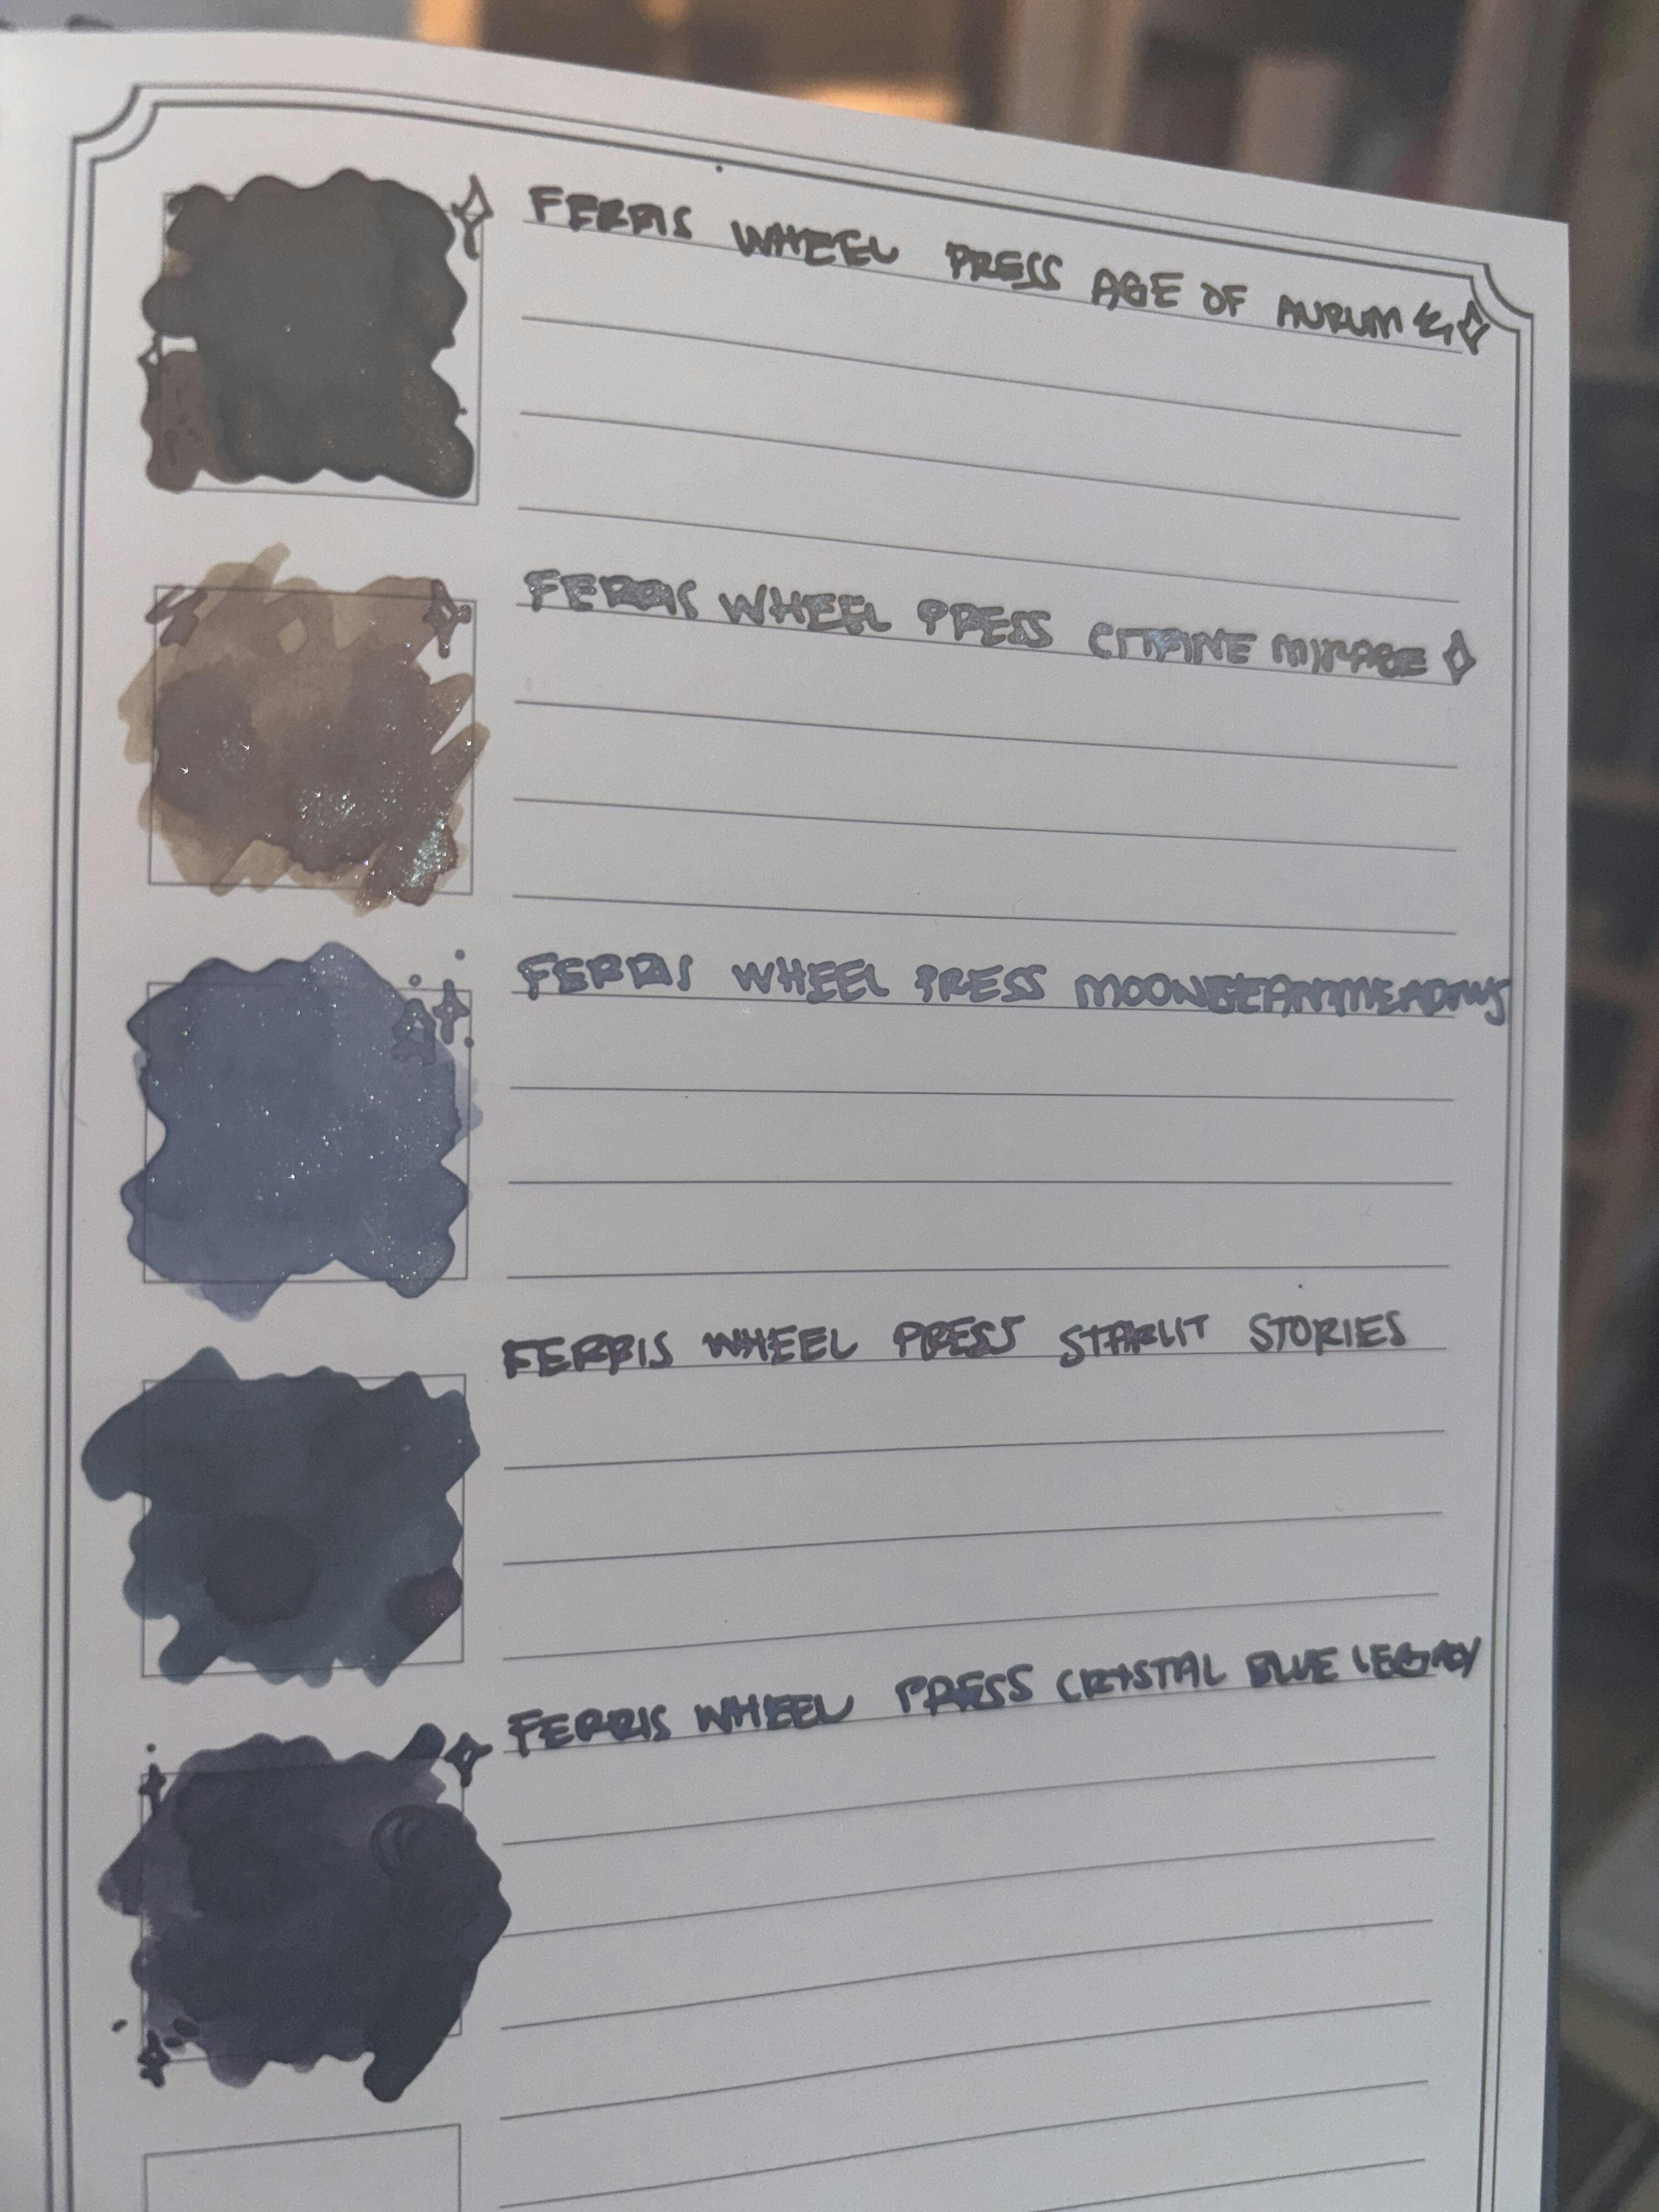 FERRIS WHEEL PRESS AGE OF AURUM
FERRIS WHEEL PRESS CITRINE MIRAGE
FERRIS WHEEL PRESS MOONBEAM MEADOWS
FERRIS WHEEL PRESS STARLIT STORIES
FERRIS WHEEL PRESS CRYSTAL BLUE LEGACY